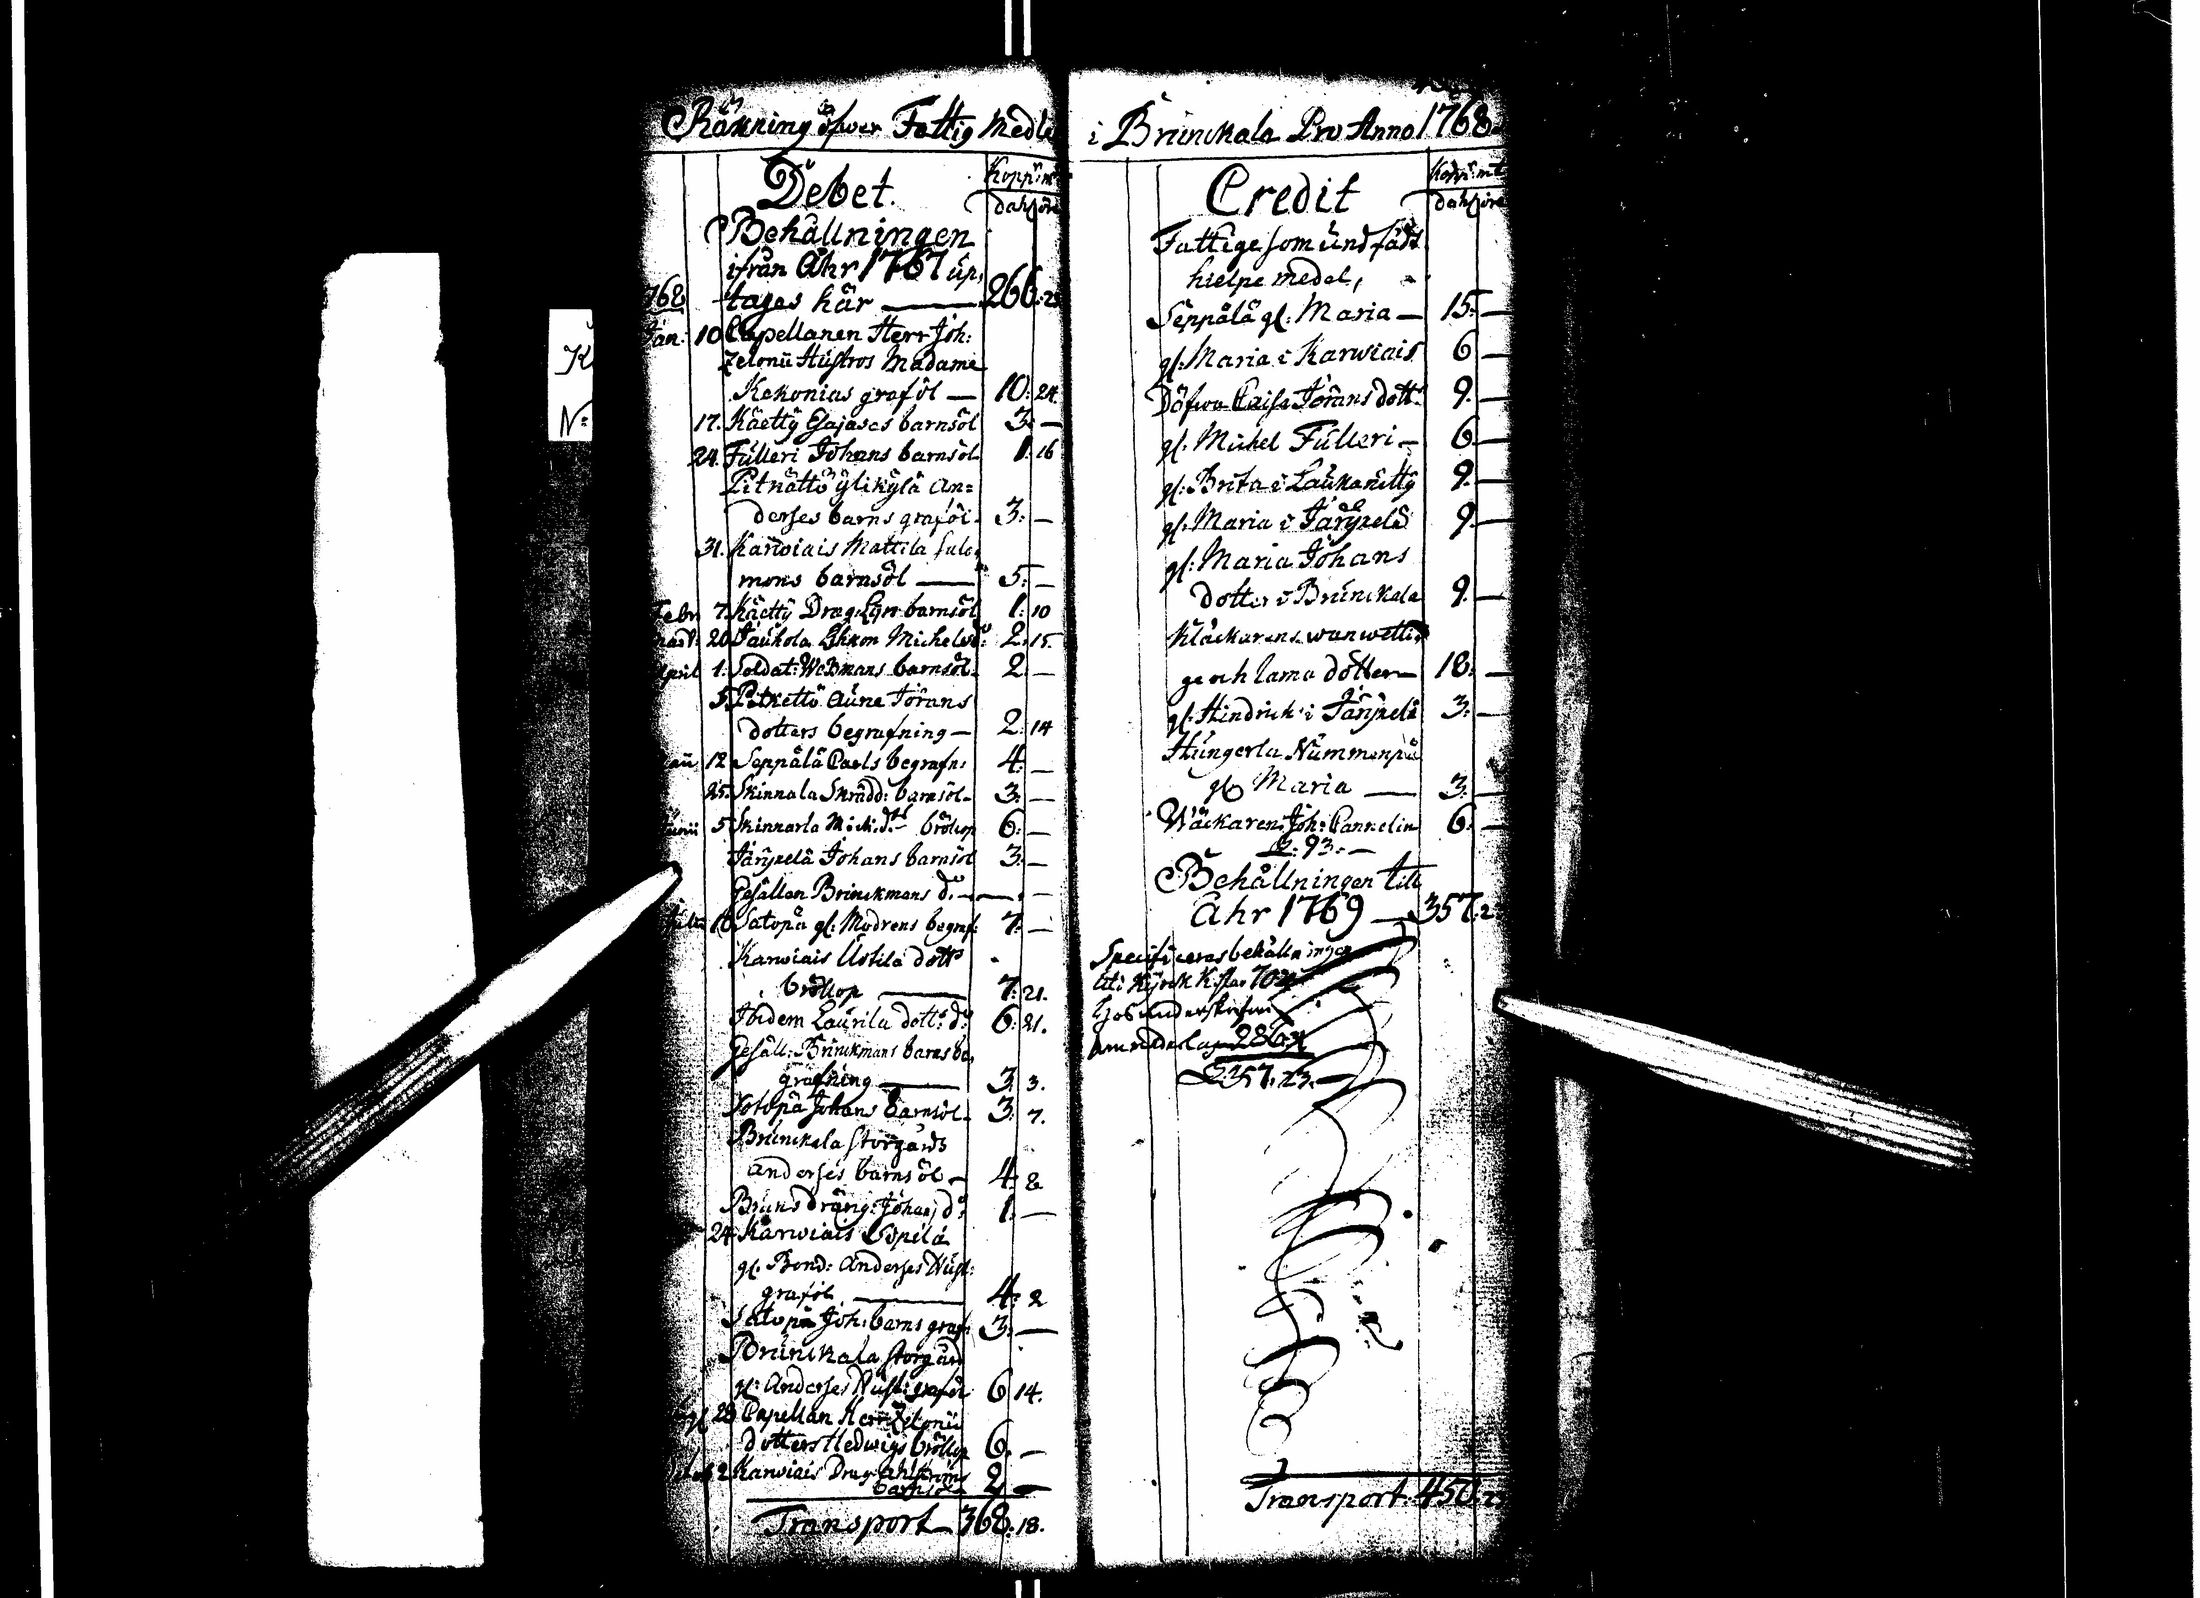 K
N:
Räkning öfwer Fattig Medle
Debet. Kopp: mt
dahl öre
Behållningen
ifrån åhr 1767 up,
768 tages här — 266: 2
Jan: 10 Capellanen Herr Joh:
Zelonii Hustros Madame
Kekonias graföl — 10: 24
17. Käetty Esajases barnsöl 3: —
24. Fulleri Johans barnsöl 1: 16
ylikylä An=
derses barns graföl 3: —
31. Karwiais Mattila Salo,
mons barnsöl — 5: —
Febr 7. Käetty Drag: barnsöl 1: 10
20 Michels 2: 15
April 1. Soldat: barnsöl 2 —
5. Aune Jörans
dotters begrafning — 2: 14
12 Seppälä Carls begrafn: 4: —
25. Skinnala Skrädd: barnsöl 3: —
Junii 5 Skinnarla Mich: dr bröllop 6: —
Järypelä Johans barnsöl 3: —
Gesällen Brinckmans do — —
Julii 10 Satopä gl: Modrens begraf: 7: —
Karwiais Ustila dottr
bröllop — 7: 21.
Ibidem Laurila dottr: do: 6: 21.
Gesäll: Brinckmans barns be,
grafning — 3 3.
Satopä Johans barnsöl 3: 7.
Brunckala Storgårds
Anderses barnsöl — 4: 8
Bruns dräng: Johans do: 1: —
24 Karwiais
gl. Bond: Anderses Hust:
graföl — 4: 2
Satopä Joh: barns graf: 3: —
Brunckala Storgård
gl: Anderses Hust: graföl 6 14.
28 Capellan Herr Zelonii
dotters Hedwigs bröllop 6: —
2 Karwiais Drag: Ahlströms
barnsöl 2 —
Transport — 368: 18.
i Brunckala Pro Anno 1768
Credit Kopp: mt
dahl öre
Fattige som undfådt
hielpe medel,
Seppälä gl: Maria — 15: —
gl: Maria i Karwiais 6 —
Döfwa Caisa Jörans dottr 9. —
gl: Michel Fulleri — 6. —
gl: Brita i Laukanitty 9. —
gl: Maria i Järypelä 9. —
gl: Maria Johans
dotter i Brunckala 9. —
Kläckarens wanwetti,
ge och lama dotter — 18: —
gl: Hindrich i Järypelä 3: —
Hungerla Nummenpä
gl: Maria — 3: —
Wäckaren Joh: Pannelin 6: —
S: 93: —
Behållningen till
åhr 1769 — 357: 2
Specificeras behållningen
uti Kyrck Kistan
hos
286:
S: 357. 23. —
Transport. 450. 23